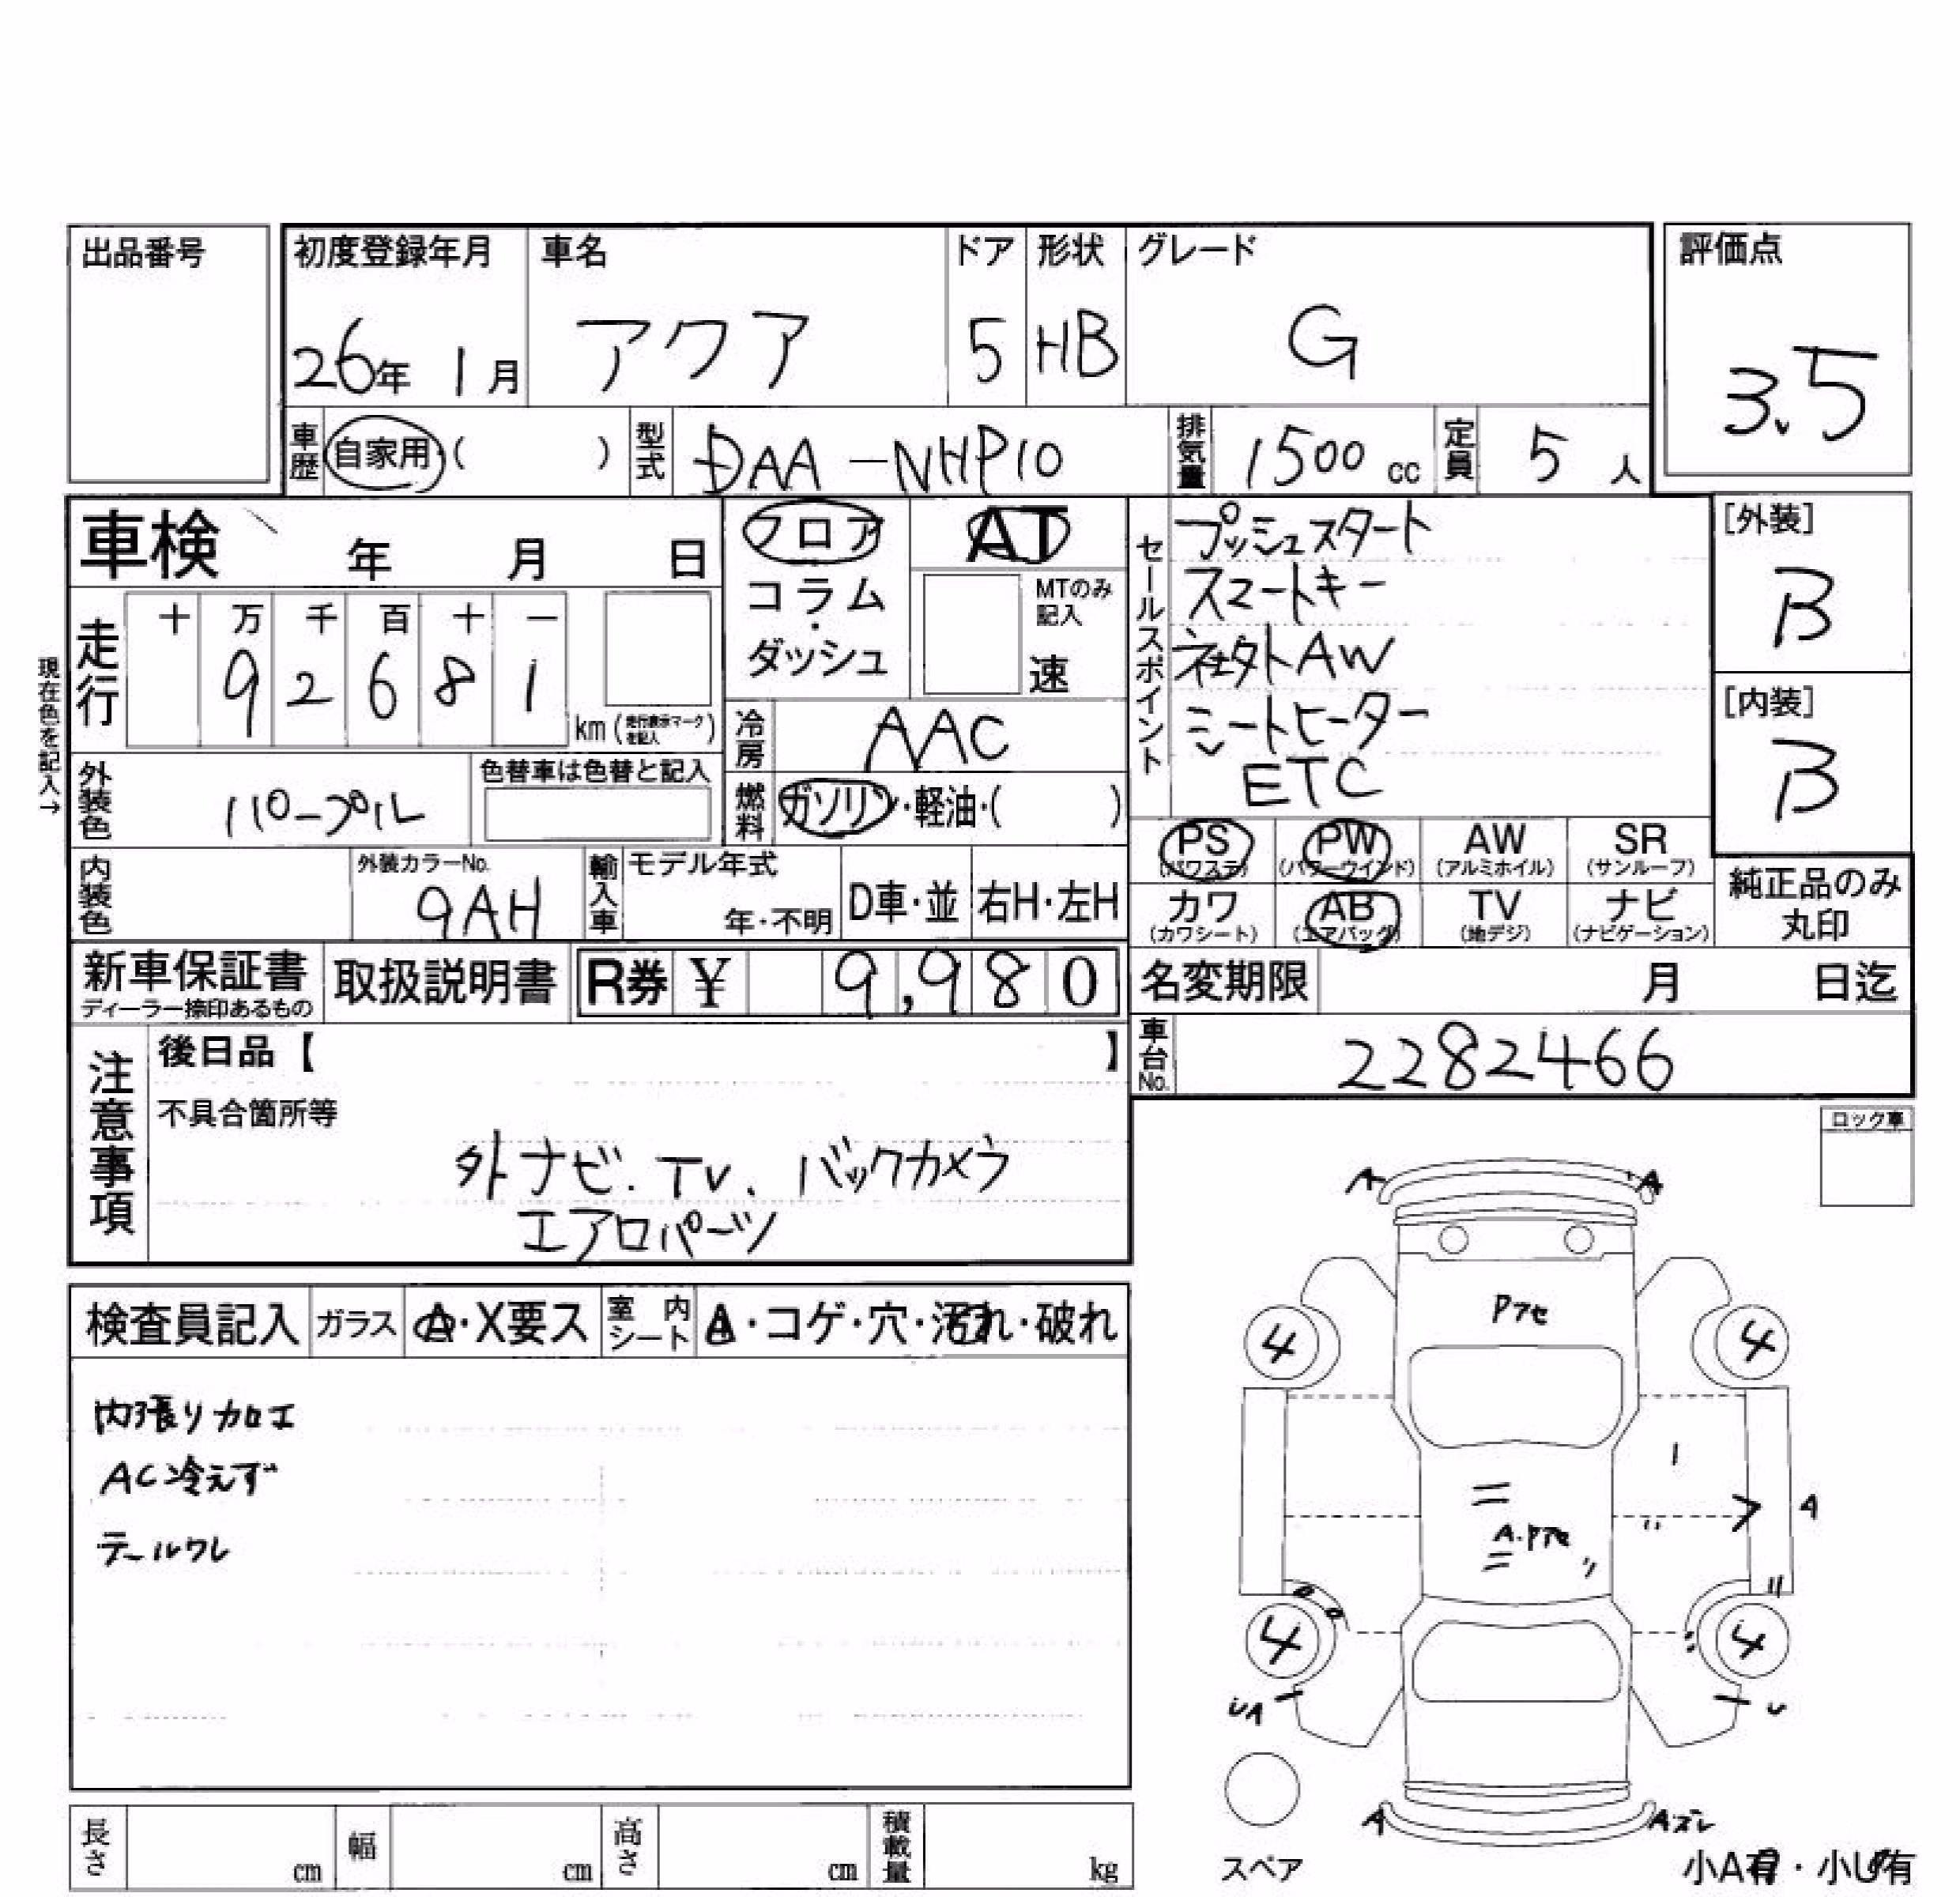 出品番号
初度登録年月 車名 ドア 形状 グレード 評価点
26年 1月 アクア 5 HB G 3.5
車歴 自家用・( ) 型式 DAA-NHP10 排気量 1500cc 定員 5人
車検 年 月 日
フロア
コラム
・
ダッシュ
AT
MTのみ
記入
速
走行 十 万 千 百 十 一
9 2 6 8 1
km (走行表示マークを記入)
現在色を記入→
冷房 AAC
外装色 パープル 色替車は色替と記入
燃料 ガソリン・軽油・( )
内装色 外装カラーNo. 9AH
輸入車 モデル年式 年・不明 D車・並 右H・左H
セールスポイント
プッシュスタート
スマートキー
社外AW
シートヒーター
ETC
[外装]
B
[内装]
B
PS (パワステ) PW (パワーウインド) AW (アルミホイル) SR (サンルーフ)
カワ (カワシート) AB (エアバッグ) TV (地デジ) ナビ (ナビゲーション)
純正品のみ
丸印
新車保証書 ディーラー捺印あるもの 取扱説明書 R券 ¥ 9,980
名変期限 月 日迄
車台No. 2282466
注意事項
後日品【 】
不具合箇所等
外ナビ.TV、バックカメラ
エアロパーツ
ロック車
検査員記入 ガラス A・X要ス 室内シート A・コゲ・穴・汚れ・破れ
内張り加工
AC冷えず
テールワレ
A A
Pアセ
4 4
A
A.Pアセ
4 4
UA U
A Aズレ
スペア
小A有・小U有
長さ cm 幅 cm 高さ cm 積載量 kg